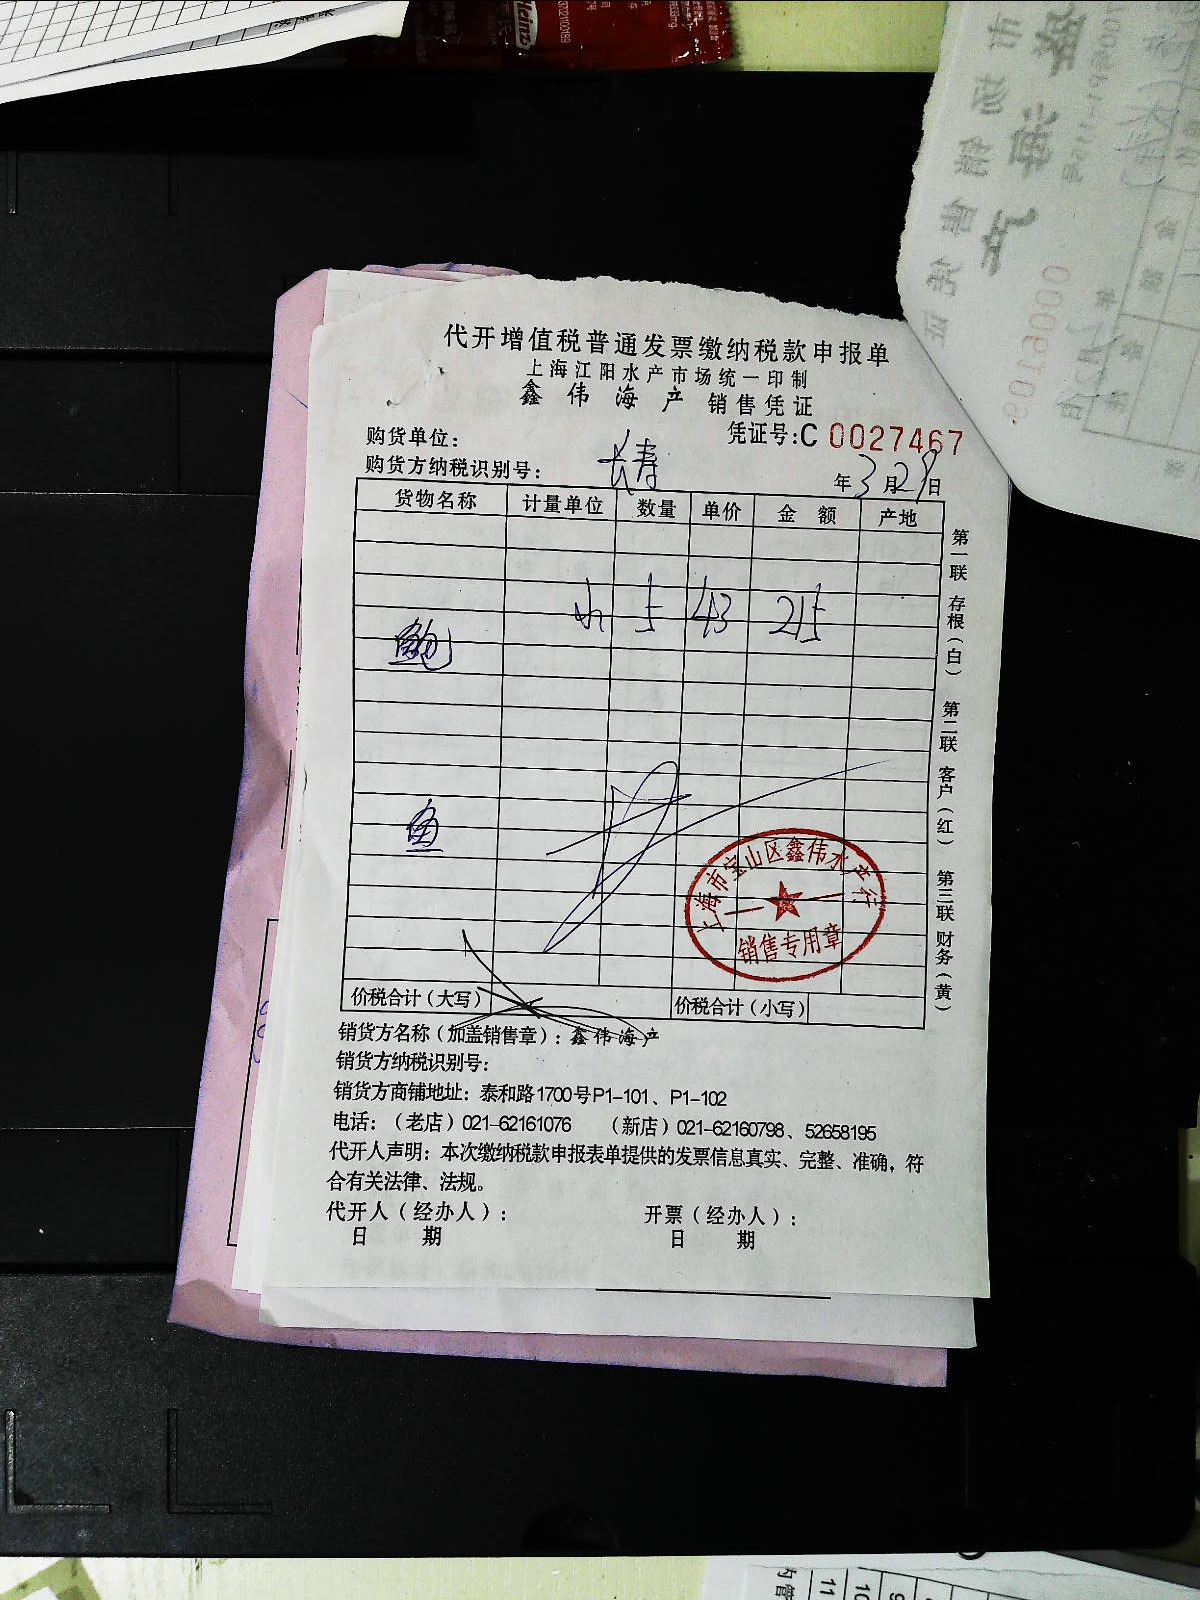 代开增值税普通发票缴纳税款申报单
上海江阳水产市场统一印制
鑫伟海产 销售凭证
凭证号:C 0027467
购货单位:
购货方纳税识别号:
长寿
年3月29日
货物名称 计量单位 数量 单价 金 额 产地
鲍 5 43 215
鱼
价税合计(大写) 价税合计(小写)
上海市宝山区鑫伟水产行
销售专用章
第一联 存根(白) 第二联 客户(红) 第三联 财务(黄)
销货方名称(加盖销售章): 鑫伟海产
销货方纳税识别号:
销货方商铺地址: 泰和路1700号P1-101、P1-102
电话:(老店)021-62161076 (新店)021-62160798、52658195
代开人声明: 本次缴纳税款申报表单提供的发票信息真实、完整、准确,符
合有关法律、法规。
代开人(经办人): 开票(经办人):
日 期 日 期
0006109